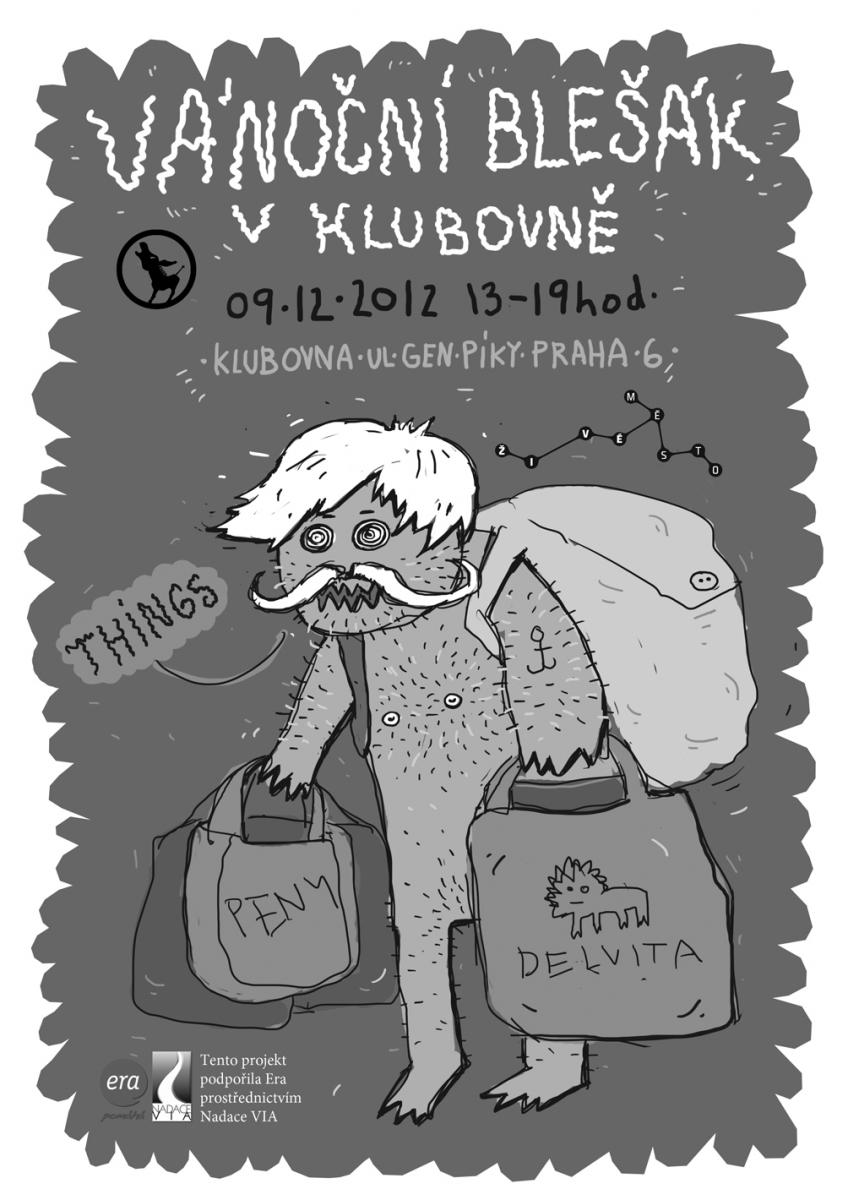 VÁNOČNÍ BLEŠÁK
V KLUBOVNĚ
09.12.2012 13-19hod.
·KLUBOVNA·UL·GEN·PÍKY·PRAHA·6·
ŽIVÉ MĚSTO
THINGS
PENY
DELVITA
era
pomáhá
NADACE
VIA
Tento projekt
podpořila Era
prostřednictvím
Nadace VIA